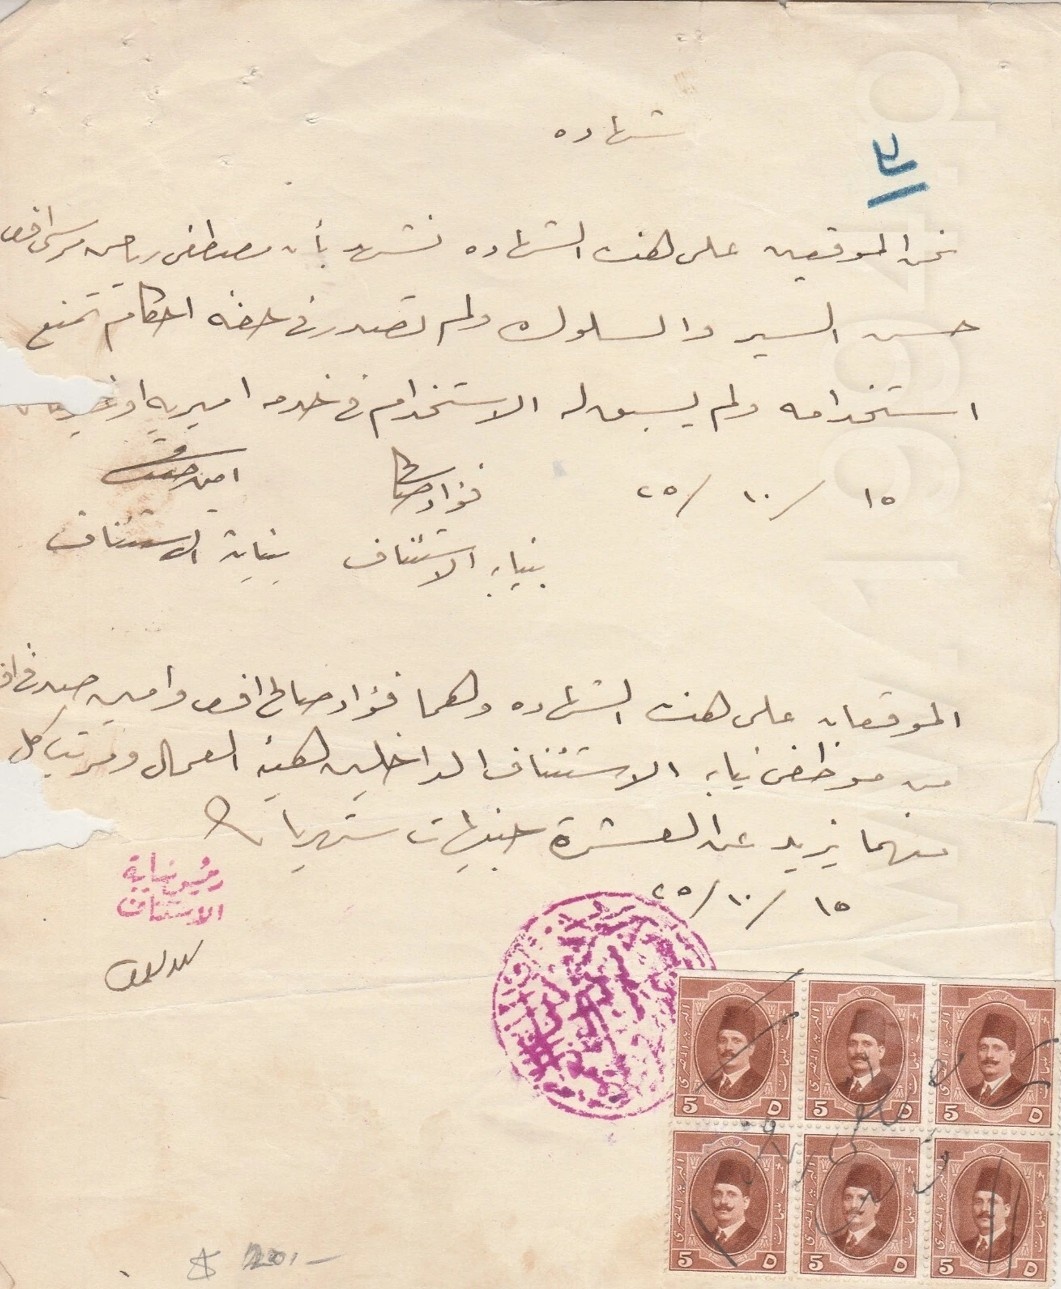 شهاده
نحن الموقعين على هذه الشهاده نشهد بأن مصطفى رياض مرسى افندى
حسن السير والسلوك ولم تصدر فى حقه احكام تمنع
استخدامه ولم يسبق له الاستخدام فى خدمه اميريه او غيرها
١٥ / ١٠ / ٢٥
فؤاد صالح
امين صدقى
بنيابة الاستئناف
بنيابة الاستئناف
الموقعان على هذه الشهاده وهما فؤاد صالح افندى وأمين صدقى
من موظفى نيابة الاستئناف الداخلين هيئة العمال ومرتب كل
منهما يزيد عن العشرة جنيهات شهريا
١٥ / ١٠ / ٢٥
رئيس نيابة
الاستئناف
5 ٥
5 ٥
5 ٥
5 ٥
5 ٥
5 ٥